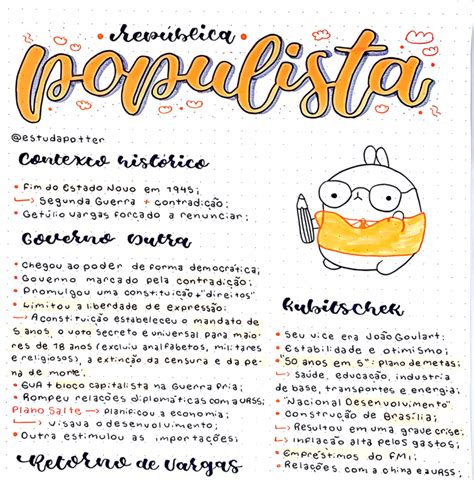 república
populista
@estudapotter
contexto histórico
• Fim do Estado Novo em 1945;
↳ Segunda Guerra + contradição;
• Getúlio Vargas forçado a renunciar;
Governo Dutra
• Chegou ao poder de forma democrática;
• Governo marcado pela contradição;
• Promulgou uma constituição + "direitos"
• Limitou a liberdade de expressão;
↳ A constituição estabeleceu o mandato de
5 anos, o voto secreto e universal para maio-
res de 18 anos (excluiu analfabetos, militares
e religiosos), a extinção da censura e da pe
na de morte;
• EUA + bloco capitalista na Guerra Fria;
• Rompeu relações diplomáticas com a URSS;
Plano Salte → planificou a economia;
↳ visava o desenvolvimento;
• Outra estimulou as importações;
Retorno de Vargas
Kubitschek
• Seu vice era João Goulart;
• Estabilidade e otimismo;
• "50 anos em 5": plano de metas;
↳ saúde, educação, industria
de base, transportes e energia;
• "Nacional Desenvolvimento"
• Construção de Brasília;
↳ Resultou em uma grave crise;
↳ inflação alta pelos gastos;
• Empréstimos do FMI;
• Relações com a china e a URSS;